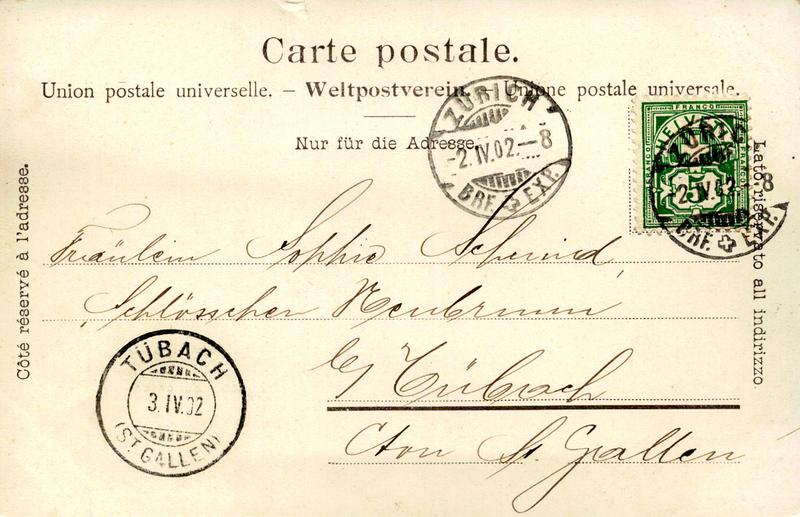 Carte postale.
Union postale universelle. – Weltpostverein. – Unione postale universale.
Nur für die Adresse.
Côté réservé à l'adresse.
Lato riservato all indirizzo
ZÜRICH
-2.IV.02.-8
BRF. EXP.
FRANCO
HELVETIA
FRANCO
FRANCO
5
ZÜRICH
-2.IV.02.-8
BRF. EXP.
Fräulein Sophie Schmid,
Schlösschen
b/ Tübach
Cton St. Gallen
TÜBACH
3.IV.02
(ST. GALLEN)